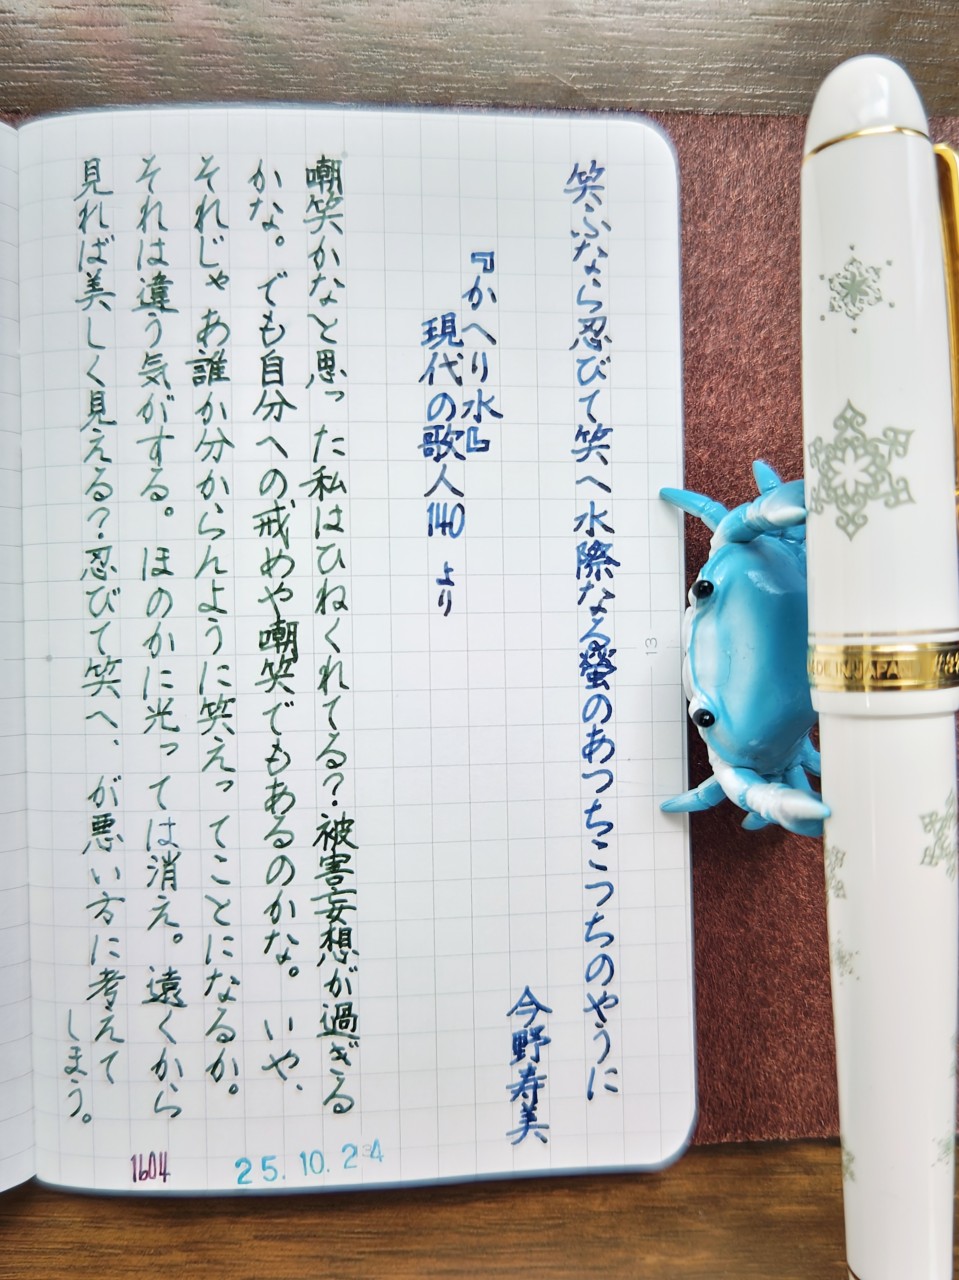 笑ふなら忍びて笑へ水際なる螢のあつちこつちのやうに
今野寿美
『かへり水』
現代の歌人140 より
嘲笑かなと思った私はひねくれてる?被害妄想が過ぎる
かな。でも自分への戒めや嘲笑でもあるのかな。いや、
それじゃあ誰か分からんように笑えってことになるか。
それは違う気がする。ほのかに光っては消え。遠くから
見れば美しく見える?忍びて笑へ、が悪い方に考えて
しまう。
1604
25.10.24
13
JAPAN